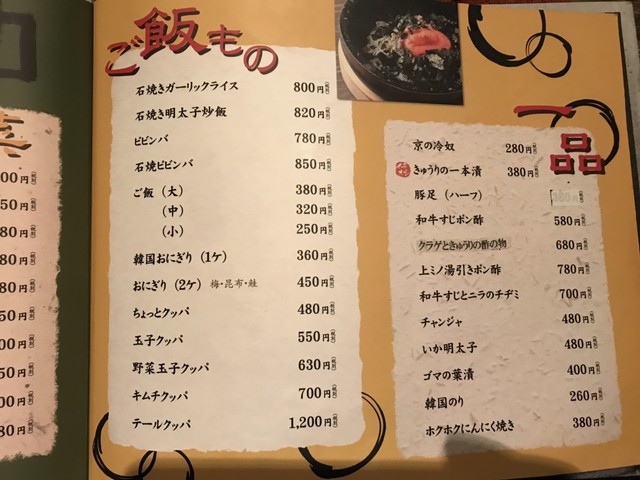 ご飯もの
石焼きガーリックライス 800円(税別)
石焼き明太子炒飯 820円(税別)
ビビンバ 780円(税別)
石焼ビビンバ 850円(税別)
ご飯(大) 380円(税別)
(中) 320円(税別)
(小) 250円(税別)
韓国おにぎり(1ケ) 360円(税別)
おにぎり(2ケ) 梅・昆布・鮭 450円(税別)
ちょっとクッパ 480円(税別)
玉子クッパ 550円(税別)
野菜玉子クッパ 630円(税別)
キムチクッパ 700円(税別)
テールクッパ 1,200円(税別)
一品
京の冷奴 280円(税別)
きゅうりの一本漬 380円(税別)
豚足(ハーフ)
和牛すじポン酢 580円(税別)
クラゲときゅうりの酢の物 680円(税別)
上ミノ湯引きポン酢 780円(税別)
和牛すじとニラのチヂミ 700円(税別)
チャンジャ 480円(税別)
いか明太子 480円(税別)
ゴマの葉漬 400円(税別)
韓国のり 260円(税別)
ホクホクにんにく焼き 380円(税別)